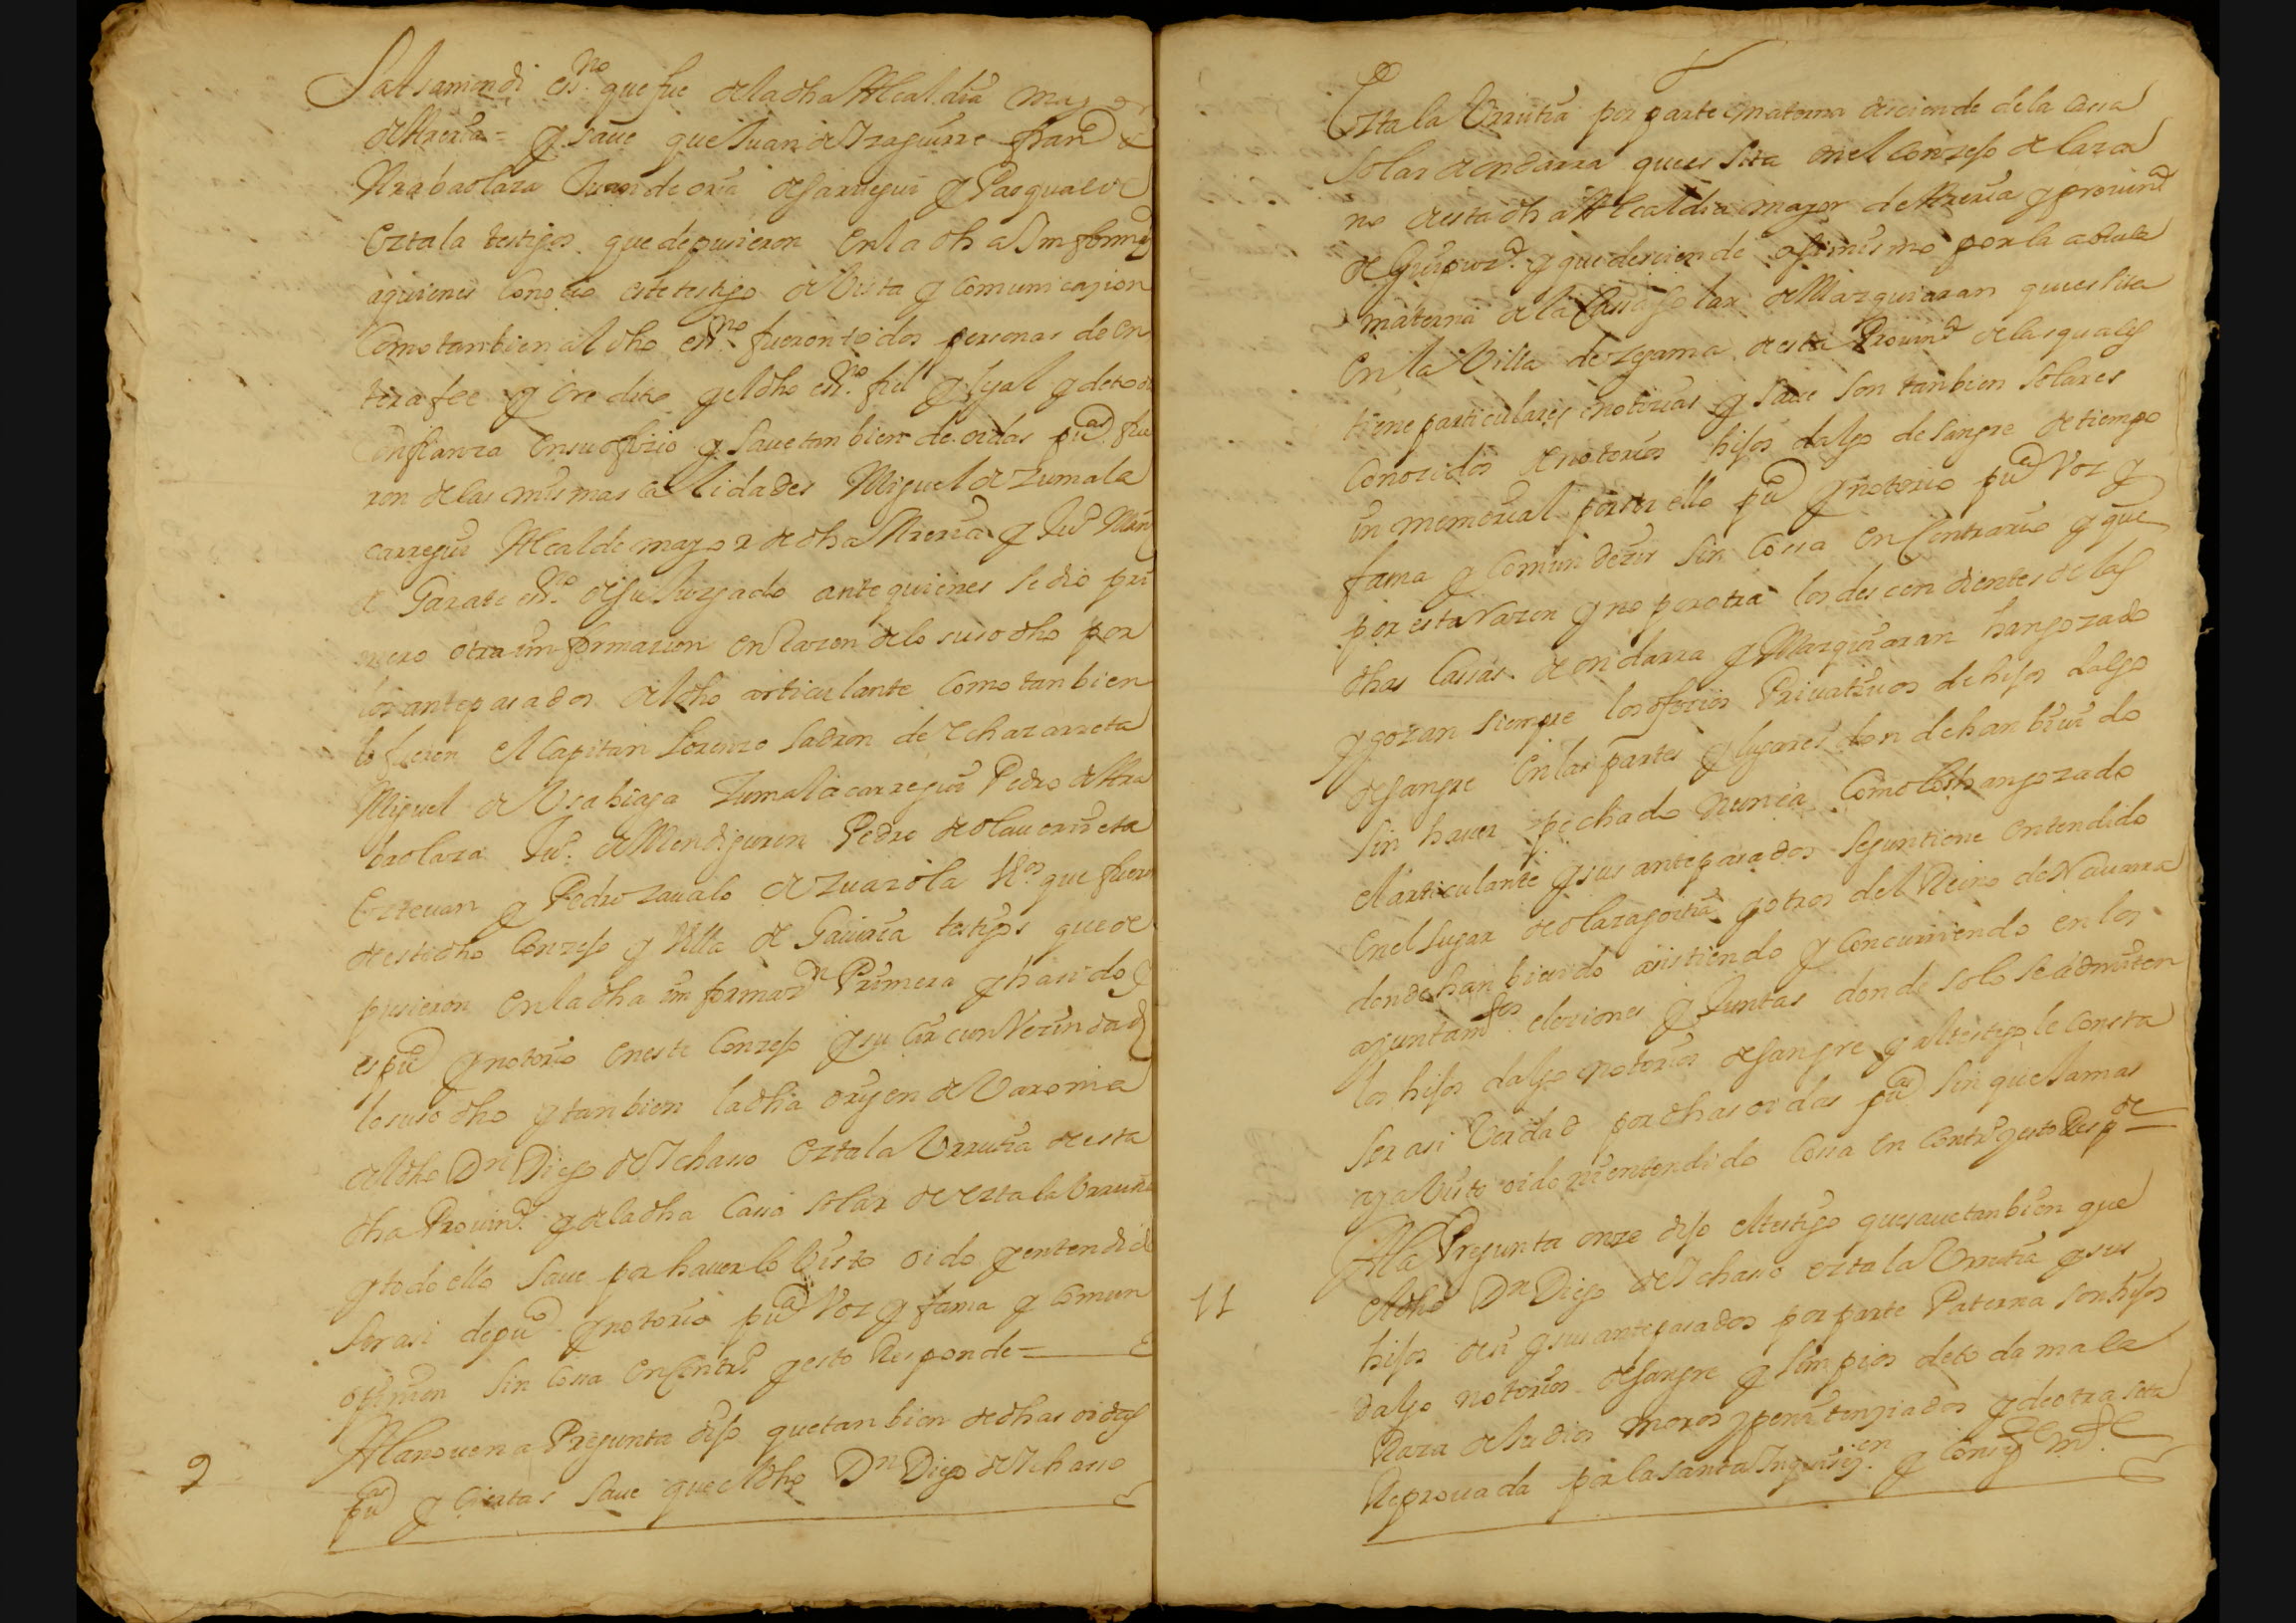 Salsamendi essno que fue de la dha Alcaldia may
de Areria = y saue que Juan de Yzaguirre franco de
Arabaolaza Juan de oria de sarregui y Pasqual de
Eztala testigos que depusieron en la dha Informon
a quienes conocio este testigo de Vista y comunicazion
Como tanbien al dho essno fueron todos personas de en
tera fee y credito y el dho essno fiel y leal y de toda
Confianza en su ofizio y saue tan bien de oidas pucas fue
ron de las mismas calidades Miguel de Zumala
carregui Alcalde mayor de dha Areria y Juo Martin
de Garate essno de su Juzgado ante quienes se dio pri
mero otra imformazion en Razon de lo suso dho por
los antepasados del dho articulante Como tan bien
lo fueron el Capitan Lorenzo Ladron de Echazarreta
Miguel de Vsabiaga Zumalacarregui Pedro de Ara
baolaza Juo de Mendiguren Pedro de olauerrieta
Esteuan y Pedro zaualo de Zuazola Vos que fueron
de este dho Conzejo y Villa de Gauiria testigos que de
pusieron en la dha imformazn Primera y ha sido y
es puco y notorio en este Conzejo y su Circunvezindad
lo suso dho y tan bien la dha orijen de Varonia
del dho Dn Diego de Ychaso Eztala Vrrutia de esta
dha Prouina y de la dha Casa solar de Eztala Vrrutia
y todo ello saue por hauerlo Visto oido y entendido
ser asi de puco y notorio puca Voz y fama y comun
opinion sin cosa en Contro y esto Responde
9 A la nouena Pregunta dijo que tan bien de dhas oidas
pucas y ciertas saue que el dho Dn Diego de Ychaso
Eztala Vrrutia por parte materna desciende de la casa
solar de ondarra que es sita en el Conzejo de lazca
no de esta dha Alcaldia mayor de Areria y prouina
de Guipuza y que desciende asimismo por la abuela
materna de la Casa solar de Mazquiaran que es sita
en la Villa de zegama de esta Prouina de las quales
tiene particulares notizias y saue son tanbien solares
Conozidos de notorios hijos dalgo de sangre de tiempo
in memorial por ser ello puco y notorio puca Voz y
fama y comun dezir sin cosa en Contrario y que
por esta Razon y no por otra los descendientes de las
dhas Casas de ondarra y Mazquiaran han gozado
y gozan siempre los ofizios Priuatiuos de hijos dalgo
de sangre en las partes y lugares donde han biuido
sin hauer pechado nunca Como los han gozado
el articulante y sus antepasados segun tiene entendido
en el lugar de olazagoitia y otros del Reino de Nauarra
donde han biuido asistiendo y concurriendo en los
ayuntamtos eleziones y Juntas donde solo se admiten
los hijos dalgo notorios de sangre y al testigo le consta
ser asi Verdad por dhas oidas pucas sin que Jamas
aya Visto oido ni entendido cosa en contro y esto Respde
11 A la Pregunta onze dijo el testigo que saue tanbien que
el dho Dn Diego de Ychaso eztala Vrrutia y sus
hijos de el y sus antepasados por parte Paterna son hijos
dalgo notorios de sangre y limpios de toda mala
Raza de Judios moros y penitenziados y de otra seta
Reprouada por la santa Inquisizon y Consigte mte